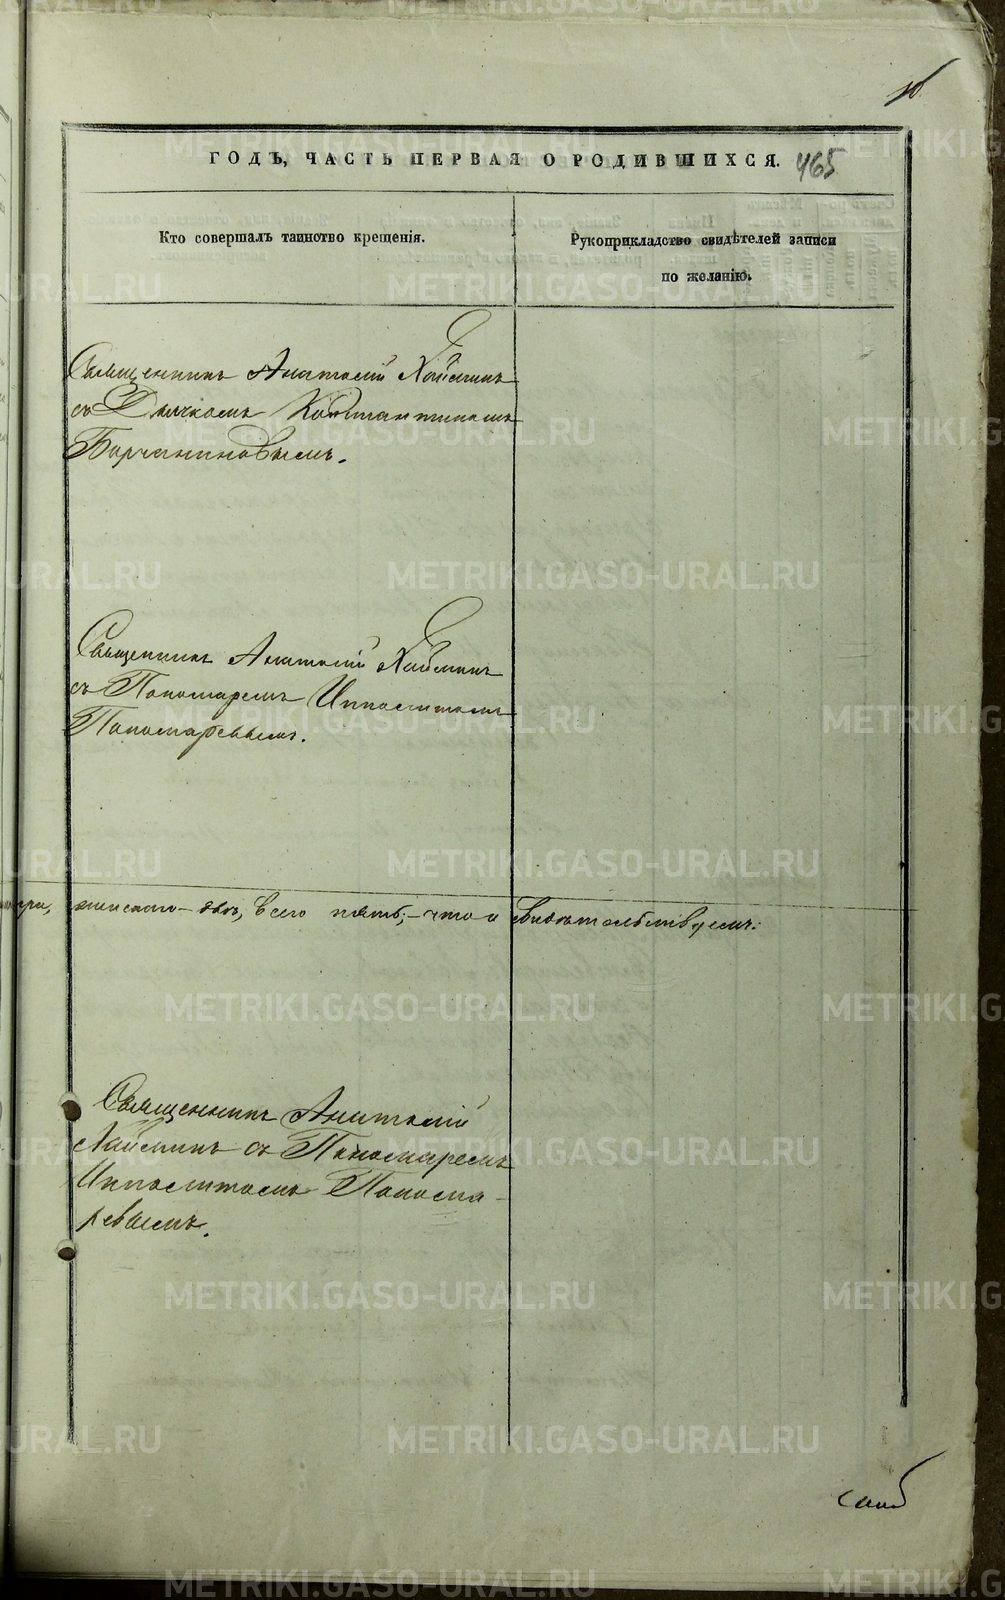 ГОДЪ, ЧАСТЬ ПЕРВАЯ О РОДИВШИХСЯ. 465
Кто совершалъ таинство крещенія.
Рукоприкладство свидѣтелей записи
по желанію.
Священникъ Анатолій Хаймин
съ Дьячкомъ Константиномъ
Борчаниновымъ.
Священникъ Анатолій Хаймин
съ Пономаремъ Ипполитомъ
Пономаревымъ.
женскаго - двѣ, всего пять; - что и свидѣтельствуемъ:
Священникъ Анатолій
Хаймин съ Пономаремъ
Ипполитомъ Понома-
ревымъ.
METRIKI.GASO-URAL.RU